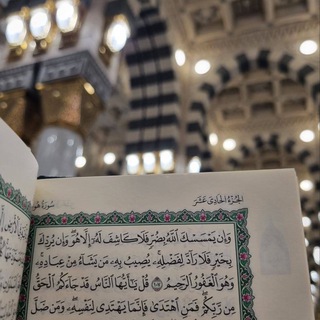 الجزء الحادي عشر
سورة
وَإِن يَمْسَسْكَ اللَّهُ بِضُرٍّ فَلَا كَاشِفَ لَهُ إِلَّا هُوَ وَإِن يُرِدْكَ
بِخَيْرٍ فَلَا رَادَّ لِفَضْلِهِ يُصِيبُ بِهِ مَن يَشَاءُ مِنْ عِبَادِهِ
وَهُوَ الْغَفُورُ الرَّحِيمُ ١٠٧ قُلْ يَا أَيُّهَا النَّاسُ قَدْ جَاءَكُمُ الْحَقُّ
مِن رَّبِّكُمْ فَمَنِ اهْتَدَىٰ فَإِنَّمَا يَهْتَدِي لِنَفْسِهِ وَمَن ضَلَّ